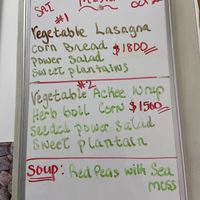 SAT
#1
Vegetable Lasagna
Corn Bread $1800
Power Salad
Sweet plantains
#2
Vegetable Ackee Wrap
Herb boil Corn $1560
Seeded power Salad
Sweet plantain
Soup: Red Peas with Sea
moss